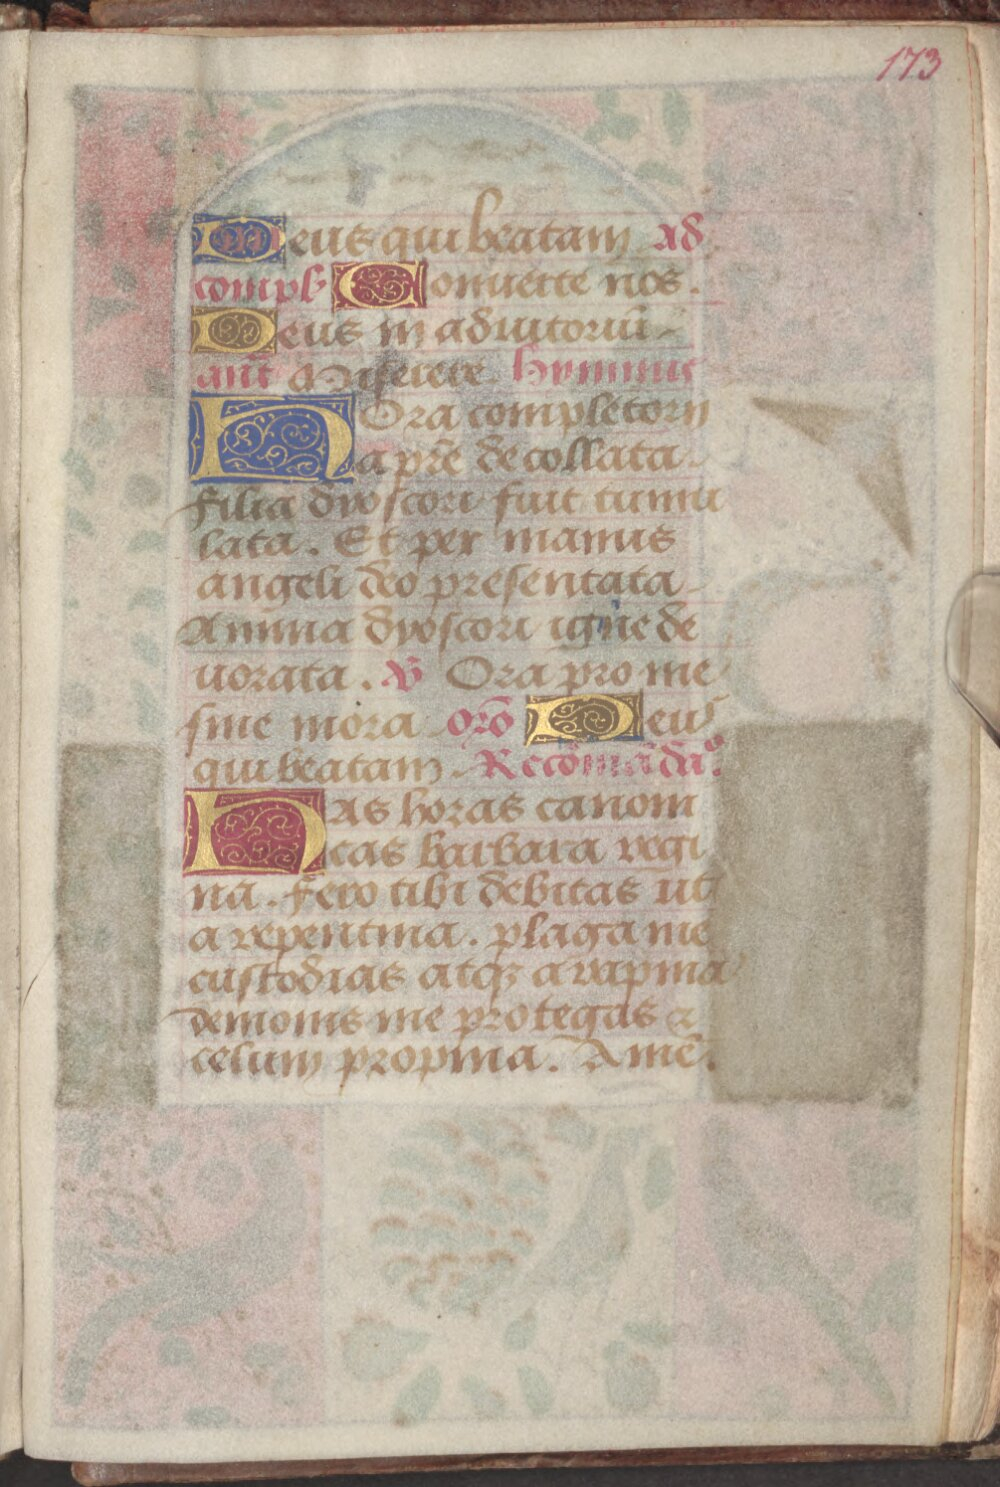 173
Deus qui beatam ad
compl' Conuerte nos.
Deus in adiutoriū
añt Miserere. Hymnus
Hora completorii
a pr̄e decollata
filia dyoscori fuit tumu
lata. Et per manus
angeli deo presentata
Anima dyoscori igne de
uorata. ℣ Ora pro me
sine mora oro Deus
qui beatam. Recōmēdaº
Has horas canoni
cas barbara regi
na. fero tibi debitas ut
a repentina. plaga me
custodias atqꝫ a rapina
demonis me protegas ⁊
celum propina. Amē.